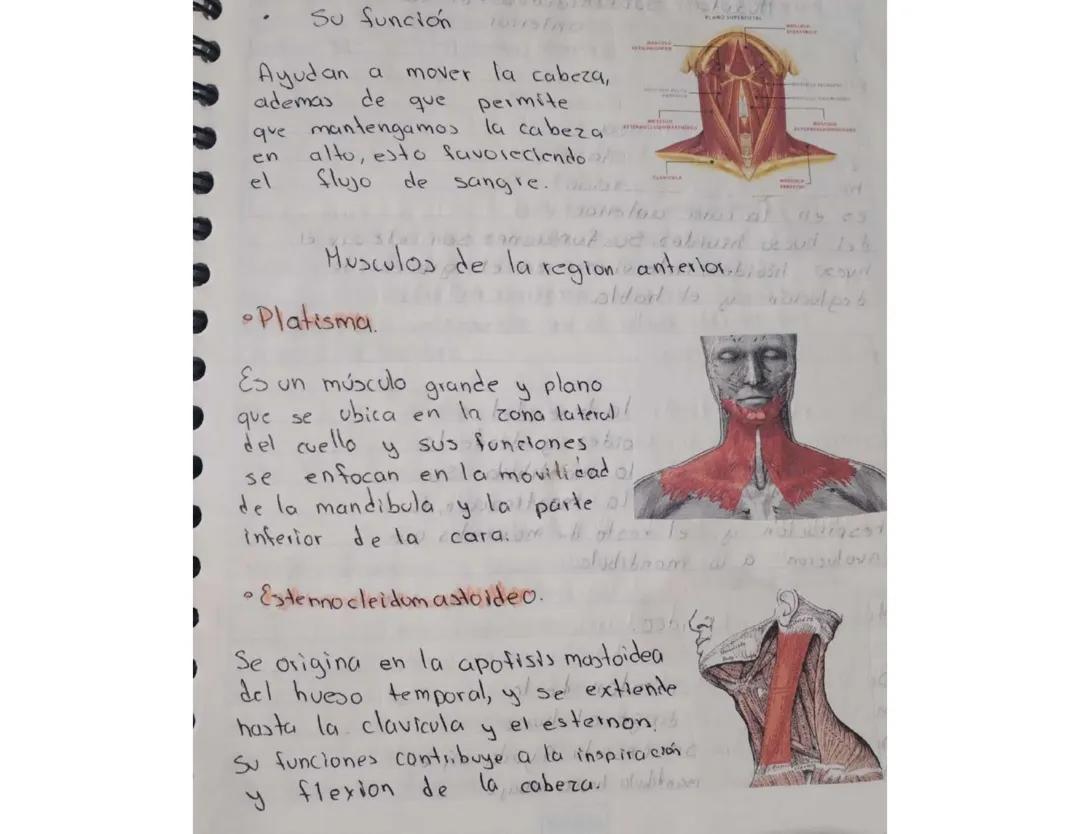 • Su función
Ayudan a mover la cabeza,
ademas de que permite
que mantengamos la cabeza
en alto, esto favoreciendo
el flujo de sangre.
PLANO SUPERFICIAL
CLAVICULA
Musculos de la region anterior.
• Platisma.
Es un músculo grande y plano
que se ubica en la zona lateral
del cuello y sus funciones
se enfocan en la movilidad
de la mandibula y la parte
inferior de la cara.
• Esternocleidomastoideo.
Se origina en la apofisis mastoidea
del hueso temporal, y se extiende
hasta la clavicula y el esternon.
Su funciones contribuye a la inspiración
y flexion de la cabeza.